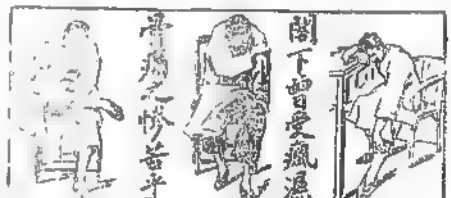 閣下曾受瘋濕
骨痛之慘苦乎